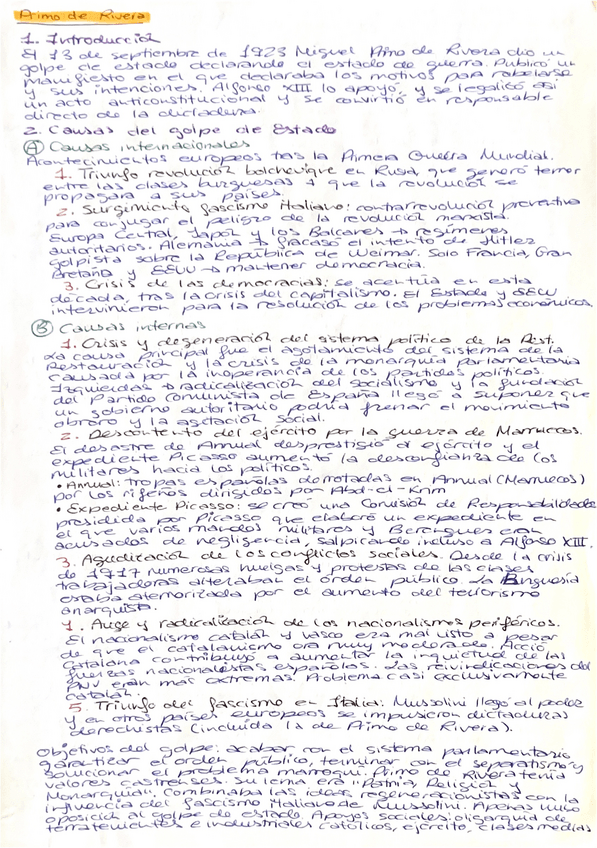 Primo de Rivera
1. Introducción
El 13 de septiembre de 1923 Miguel Primo de Rivera dio un
golpe de estado declarando el estado de guerra. Publicó un
manifiesto en el que declaraba los motivos para rebelarse
y sus intenciones. Alfonso XIII lo apoyó, y se legalizó así
un acto anticonstitucional y se convirtió en responsable
directo de la dictadura.
2. Causas del golpe de Estado
A Causas internacionales
Acontecimientos europeos tras la Primera Guerra Mundial.
1. Triunfo revolución bolchevique en Rusia, que generó temor
entre las clases burguesas y que la revolución se
propagara a sus países.
2. Surgimiento fascismo italiano: contrarrevolución preventiva
para conjugar el peligro de la revolución marxista.
Europa Central, Japón y los Balcanes → regímenes
autoritarios. Alemania → fracasó el intento de Hitler
golpista sobre la República de Weimar. Solo Francia, Gran
Bretaña y EEUU → mantener democracia.
3. Crisis de las democracias: se acentúa en esta
década, tras la crisis del capitalismo. El Estado y EEUU
intervinieron para la resolución de los problemas económicos.
B Causas internas
1. Crisis y degeneración del sistema político de la Rest.
La causa principal fue el agotamiento del sistema de la
Restauración y la crisis de la monarquía parlamentaria
causada por la inoperancia de los partidos políticos.
Izquierdas → radicalización del socialismo y la fundación
del Partido Comunista de España llegó a suponer que
un gobierno autoritario podría frenar el movimiento
obrero y la agitación social.
2. Descontento del ejército por la guerra de Marruecos.
El desastre de Annual desprestigió al ejército y el
expediente Picasso aumentó la desconfianza de los
militares hacia los políticos.
• Annual: tropas españolas derrotadas en Annual (Marruecos)
por los rifeños dirigidos por Abd-el-Krim
• Expediente Picasso: se creó una Comisión de Responsabilidades
presidida por Picasso que elaboró un expediente en
el que varios mandos militares y Berenguer eran
acusados de negligencia, salpicando incluso a Alfonso XIII.
3. Agudización de los conflictos sociales. Desde la crisis
de 1917 numerosas huelgas y protestas de las clases
trabajadoras alteraban el orden público. La Burguesía
estaba atemorizada por el aumento del terrorismo
anarquista.
4. Auge y radicalización de los nacionalismos periféricos.
El nacionalismo catalán y vasco era mal visto a pesar
de que el catalanismo era muy moderado. Acció
Catalana contribuyó a aumentar la inquietud de las
fuerzas nacionalistas españolas. Las reivindicaciones del
PNV eran más extremas. Problema casi exclusivamente
catalán.
5. Triunfo del fascismo en Italia: Mussolini llegó al poder
y en otros países europeos se impusieron dictaduras
derechistas (incluida la de Primo de Rivera).
Objetivos del golpe: acabar con el sistema parlamentario,
garantizar el orden público, terminar con el separatismo y
solucionar el problema marroquí. Primo de Rivera tenía
valores castrenses. Su lema era "Patria, Religión y
Monarquía". Combinaba las ideas regeneracionistas con la
influencia del fascismo italiano de Mussolini. Apenas hubo
oposición al golpe de estado. Apoyos sociales: oligarquía de
terratenientes e industriales católicos, ejército, clases medias